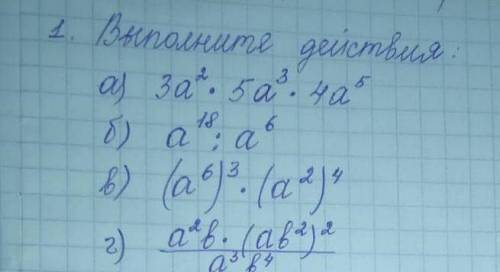 1. Выполните действия:
а) 3a² · 5a³ · 4a⁵
б) a¹⁸ : a⁶
в) (a⁶)³ · (a²)⁴
г) a²b · (ab²)²
a³b⁴